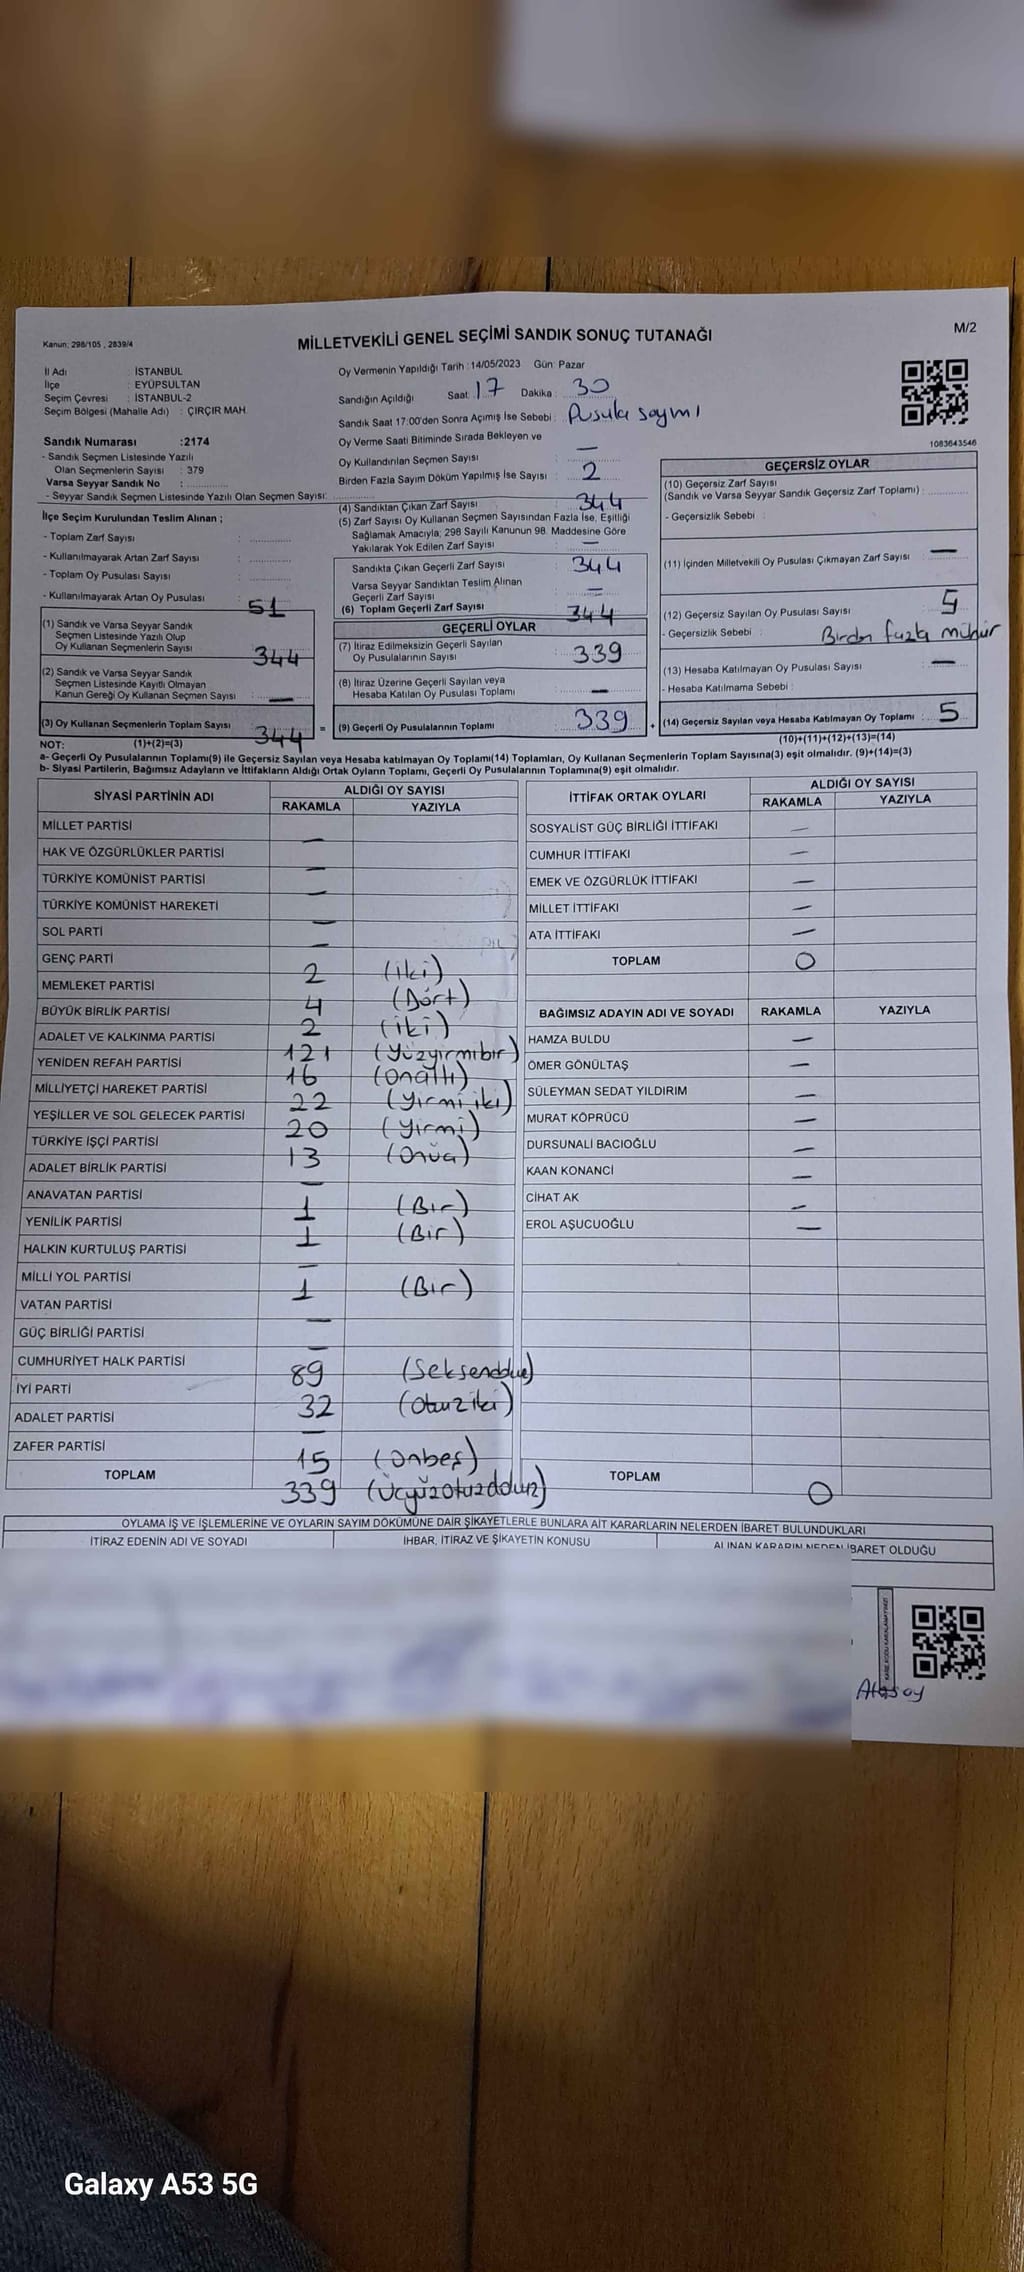 Kanun; 298/105 , 2839/4
MİLLETVEKİLİ GENEL SEÇİMİ SANDIK SONUÇ TUTANAĞI
M/2
İl Adı : İSTANBUL
İlçe : EYÜPSULTAN
Seçim Çevresi : İSTANBUL-2
Seçim Bölgesi (Mahalle Adı) : ÇIRÇIR MAH.
Oy Vermenin Yapıldığı Tarih : 14/05/2023 Gün: Pazar
Sandığın Açıldığı Saat: 17 Dakika: 30
Sandık Saat 17:00'den Sonra Açımış İse Sebebi : Pusula sayımı
Oy Verme Saati Bitiminde Sırada Bekleyen ve
Oy Kullandırılan Seçmen Sayısı : —
Birden Fazla Sayım Döküm Yapılmış İse Sayısı : 2
1083643546
Sandık Numarası :2174
- Sandık Seçmen Listesinde Yazılı
Olan Seçmenlerin Sayısı : 379
Varsa Seyyar Sandık No :
- Seyyar Sandık Seçmen Listesinde Yazılı Olan Seçmen Sayısı:
İlçe Seçim Kurulundan Teslim Alınan ;
- Toplam Zarf Sayısı :
- Kullanılmayarak Artan Zarf Sayısı :
- Toplam Oy Pusulası Sayısı :
- Kullanılmayarak Artan Oy Pusulası : 51
(1) Sandık ve Varsa Seyyar Sandık
Seçmen Listesinde Yazılı Olup
Oy Kullanan Seçmenlerin Sayısı : 344
(2) Sandık ve Varsa Seyyar Sandık
Seçmen Listesinde Kayıtlı Olmayan
Kanun Gereği Oy Kullanan Seçmen Sayısı : —
(3) Oy Kullanan Seçmenlerin Toplam Sayısı : 344
(4) Sandıktan Çıkan Zarf Sayısı : 344
(5) Zarf Sayısı Oy Kullanan Seçmen Sayısından Fazla İse, Eşitliği
Sağlamak Amacıyla; 298 Sayılı Kanunun 98. Maddesine Göre
Yakılarak Yok Edilen Zarf Sayısı : —
Sandıkta Çıkan Geçerli Zarf Sayısı : 344
Varsa Seyyar Sandıktan Teslim Alınan
Geçerli Zarf Sayısı : —
(6) Toplam Geçerli Zarf Sayısı : 344
GEÇERLİ OYLAR
(7) İtiraz Edilmeksizin Geçerli Sayılan
Oy Pusulalarının Sayısı : 339
(8) İtiraz Üzerine Geçerli Sayılan veya
Hesaba Katılan Oy Pusulası Toplamı : —
= (9) Geçerli Oy Pusulalarının Toplamı : 339
GEÇERSİZ OYLAR
(10) Geçersiz Zarf Sayısı
(Sandık ve Varsa Seyyar Sandık Geçersiz Zarf Toplamı) :
- Geçersizlik Sebebi :
(11) İçinden Milletvekili Oy Pusulası Çıkmayan Zarf Sayısı : —
(12) Geçersiz Sayılan Oy Pusulası Sayısı : 5
- Geçersizlik Sebebi : Birden fazla mühür
(13) Hesaba Katılmayan Oy Pusulası Sayısı : —
- Hesaba Katılmama Sebebi :
+ (14) Geçersiz Sayılan veya Hesaba Katılmayan Oy Toplamı : 5
NOT: (1)+(2)=(3)
(10)+(11)+(12)+(13)=(14)
a- Geçerli Oy Pusulalarının Toplamı(9) ile Geçersiz Sayılan veya Hesaba katılmayan Oy Toplamı(14) Toplamları, Oy Kullanan Seçmenlerin Toplam Sayısına(3) eşit olmalıdır. (9)+(14)=(3)
b- Siyasi Partilerin, Bağımsız Adayların ve İttifakların Aldığı Ortak Oyların Toplamı, Geçerli Oy Pusulalarının Toplamına(9) eşit olmalıdır.
SİYASİ PARTİNİN ADI ALDIĞI OY SAYISI
RAKAMLA YAZIYLA
MİLLET PARTİSİ —
HAK VE ÖZGÜRLÜKLER PARTİSİ —
TÜRKİYE KOMÜNİST PARTİSİ —
TÜRKİYE KOMÜNİST HAREKETİ —
SOL PARTİ —
GENÇ PARTİ 2 (iki)
MEMLEKET PARTİSİ 4 (Dört)
BÜYÜK BİRLİK PARTİSİ 2 (iki)
ADALET VE KALKINMA PARTİSİ 121 (Yüzyirmibir)
YENİDEN REFAH PARTİSİ 16 (Onaltı)
MİLLİYETÇİ HAREKET PARTİSİ 22 (Yirmi iki)
YEŞİLLER VE SOL GELECEK PARTİSİ 20 (Yirmi)
TÜRKİYE İŞÇİ PARTİSİ 13
ADALET BİRLİK PARTİSİ —
ANAVATAN PARTİSİ 1 (Bir)
YENİLİK PARTİSİ 1 (Bir)
HALKIN KURTULUŞ PARTİSİ —
MİLLİ YOL PARTİSİ 1 (Bir)
VATAN PARTİSİ —
GÜÇ BİRLİĞİ PARTİSİ —
CUMHURİYET HALK PARTİSİ 89
İYİ PARTİ 32 (Otuz iki)
ADALET PARTİSİ —
ZAFER PARTİSİ 15 (Onbeş)
TOPLAM 339
İTTİFAK ORTAK OYLARI ALDIĞI OY SAYISI
RAKAMLA YAZIYLA
SOSYALİST GÜÇ BİRLİĞİ İTTİFAKI —
CUMHUR İTTİFAKI —
EMEK VE ÖZGÜRLÜK İTTİFAKI —
MİLLET İTTİFAKI —
ATA İTTİFAKI —
TOPLAM 0
BAĞIMSIZ ADAYIN ADI VE SOYADI RAKAMLA YAZIYLA
HAMZA BULDU —
ÖMER GÖNÜLTAŞ —
SÜLEYMAN SEDAT YILDIRIM —
MURAT KÖPRÜCÜ —
DURSUNALİ BACIOĞLU —
KAAN KONANCİ —
CİHAT AK —
EROL AŞUCUOĞLU —
TOPLAM 0
OYLAMA İŞ VE İŞLEMLERİNE VE OYLARIN SAYIM DÖKÜMÜNE DAİR ŞİKAYETLERLE BUNLARA AİT KARARLARIN NELERDEN İBARET BULUNDUKLARI
İTİRAZ EDENİN ADI VE SOYADI İHBAR, İTİRAZ VE ŞİKAYETİN KONUSU ALINAN KARARIN NEDEN İBARET OLDUĞU
Atasoy
Galaxy A53 5G